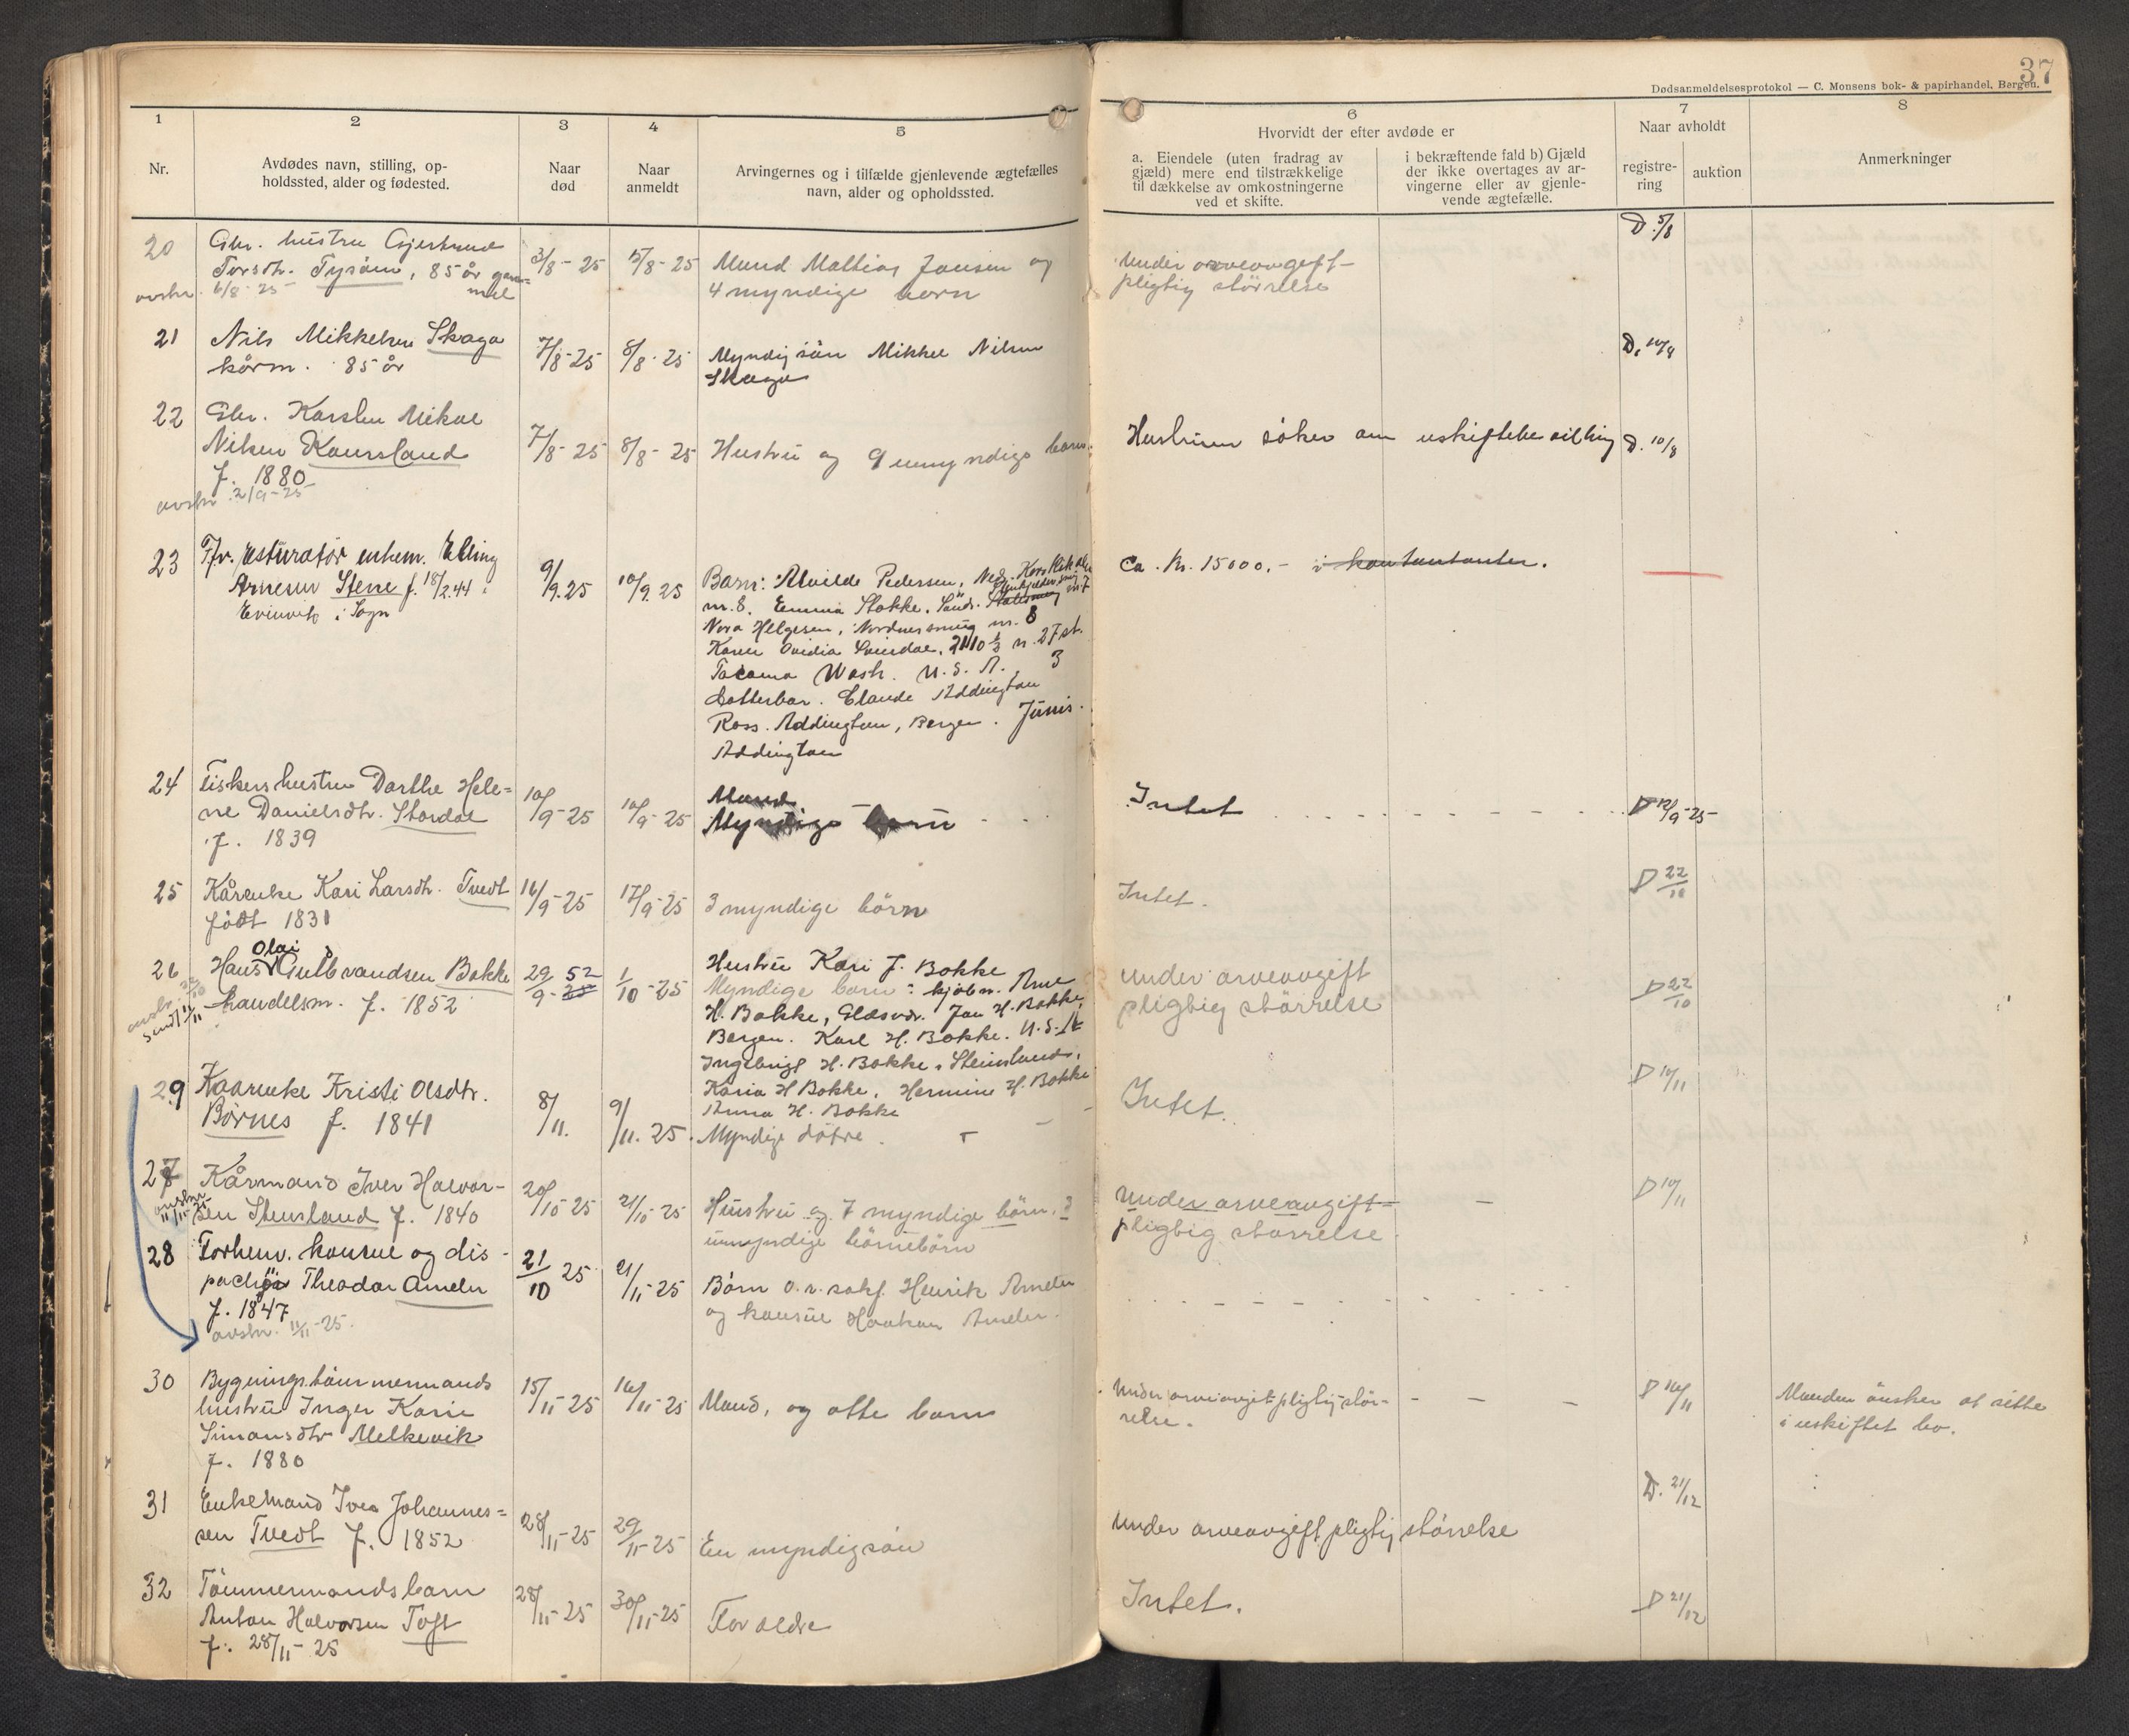 37
Dødsanmeldelsesprotokol — C. Monsens bok- & papirhandel, Bergen.
1 2 3 4 5 6 7 8
Nr.
Avdødes navn, stilling, op-
holdssted, alder og fødested.
Naar
død
Naar
anmeldt
Arvingernes og i tilfælde gjenlevende ægtefælles
navn, alder og opholdssted.
Hvorvidt der efter avdøde er
a. Eiendele (uten fradrag av
gjæld) mere end tilstrækkelige
til dækkelse av omkostningerne
ved et skifte.
i bekræftende fald b) Gjæld
der ikke overtages av ar-
vingerne eller av gjenle-
vende ægtefælle.
Naar avholdt
registre-
ring
auktion
Anmerkninger
20 Gbr. hustru Gjertrud
Torsdtr. Tysöen, 85 år gam-
mel
avskr. 6/8-25
3/8-25 5/8-25 Mand Mathias Jansen og
4 myndige born
Under arveavgift-
pligtig störrelse
D. 5/8
21 Nils Mikkelsen Skaga
kårm. 85 år
7/8-25 8/8-25 Myndig sön Mikkel Nilsen
Skaga
D. 10/8
22 Gbr. Karsten Mikal
Nilsen
f. 1880
avskr. 2/9-25
7/8-25 8/8-25 Hustru og 9 umyndige born
Hustruen söker om uskiftebevilling D. 10/8
23 Elling
Arnesen Stene f. 18/2.44
i Sogn
9/9.25 10/9.25 Barn: Alvilde Pedersen,
nr. 8. Emma Stokke,
Nora Helgesen, Nordnessmug nr. 8
Karen Ovidia 2110 ½ n. 27 st.
Tacoma Wash. U.S.A. 3
datterbar. Claude Addington
Ross. Addington, Bergen. Junis
Addington
ca. kr. 15000.- i kontantanter.
24 Fiskers hustru Dorthe Hele-
ne Danielsdtr. Stordal
f. 1839
10/9-25 10/9-25 Mand
Myndige born
Intet D 12/9-25
25 Kårenke Kari Larsdtr. Tvedt
födt 1831
16/9-25 17/9-25 3 myndige börn
Intet. D 22/10
26 Hans Olai Gulbrandsen Bakke
handelsm. f. 1852
29/9-25 52 1/10-25 Hustru Kari J. Bakke
Myndige born: kjöbm. Arne
H. Bakke, Glæsvær. Jan H. Bakke,
Bergen. Karl H. Bakke. U.S.A
Ingebrigt H. Bakke, Steinsland,
Karia H Bakke, Hermine H. Bakke
Anna H. Bakke
under arveavgift
pligtig störrelse D 22/10
29 Kaarenke Kristi Olsdtr.
Börnes f. 1841
8/11. 9/11. 25. Myndige dötre.
Intet. D 10/11
27 Kårmand Iver Halvor-
sen Steinsland f. 1840
avskr. 11/11-25
20/10-25 21/10-25 Hustru og 7 myndige börn, 3
umyndige börnebörn
Under arveavgift-
pligtig störrelse D 10/11
28 Forhenv. konsul og dis-
pachör Theodor Ameln
f. 1847
avskr. 11/11-25.
21/10 25 Börn o.r.sakf. Henrik Ameln
og konsul Haakon Ameln.
30 Bygningstömmermands
hustru Inger Karie
Simonsdtr Melkevik
f. 1880
15/11-25 16/11-25 Mand, og otte born
Under arveavgiftpligtig stör-
relse. D 16/11
Manden önsker at sitte
i uskiftet bo.
31 Enkemand Iver Johannes-
sen Tvedt f. 1852
28/11-25 29/11-25 En myndig sön
under arveavgiftpligtig störrelse D. 21/12
32 Tömmermandsbarn
Anton Halvorsen Toft
f. 28/11-25
28/11-25 30/11-25 Foreldre
Intet. D 21/12